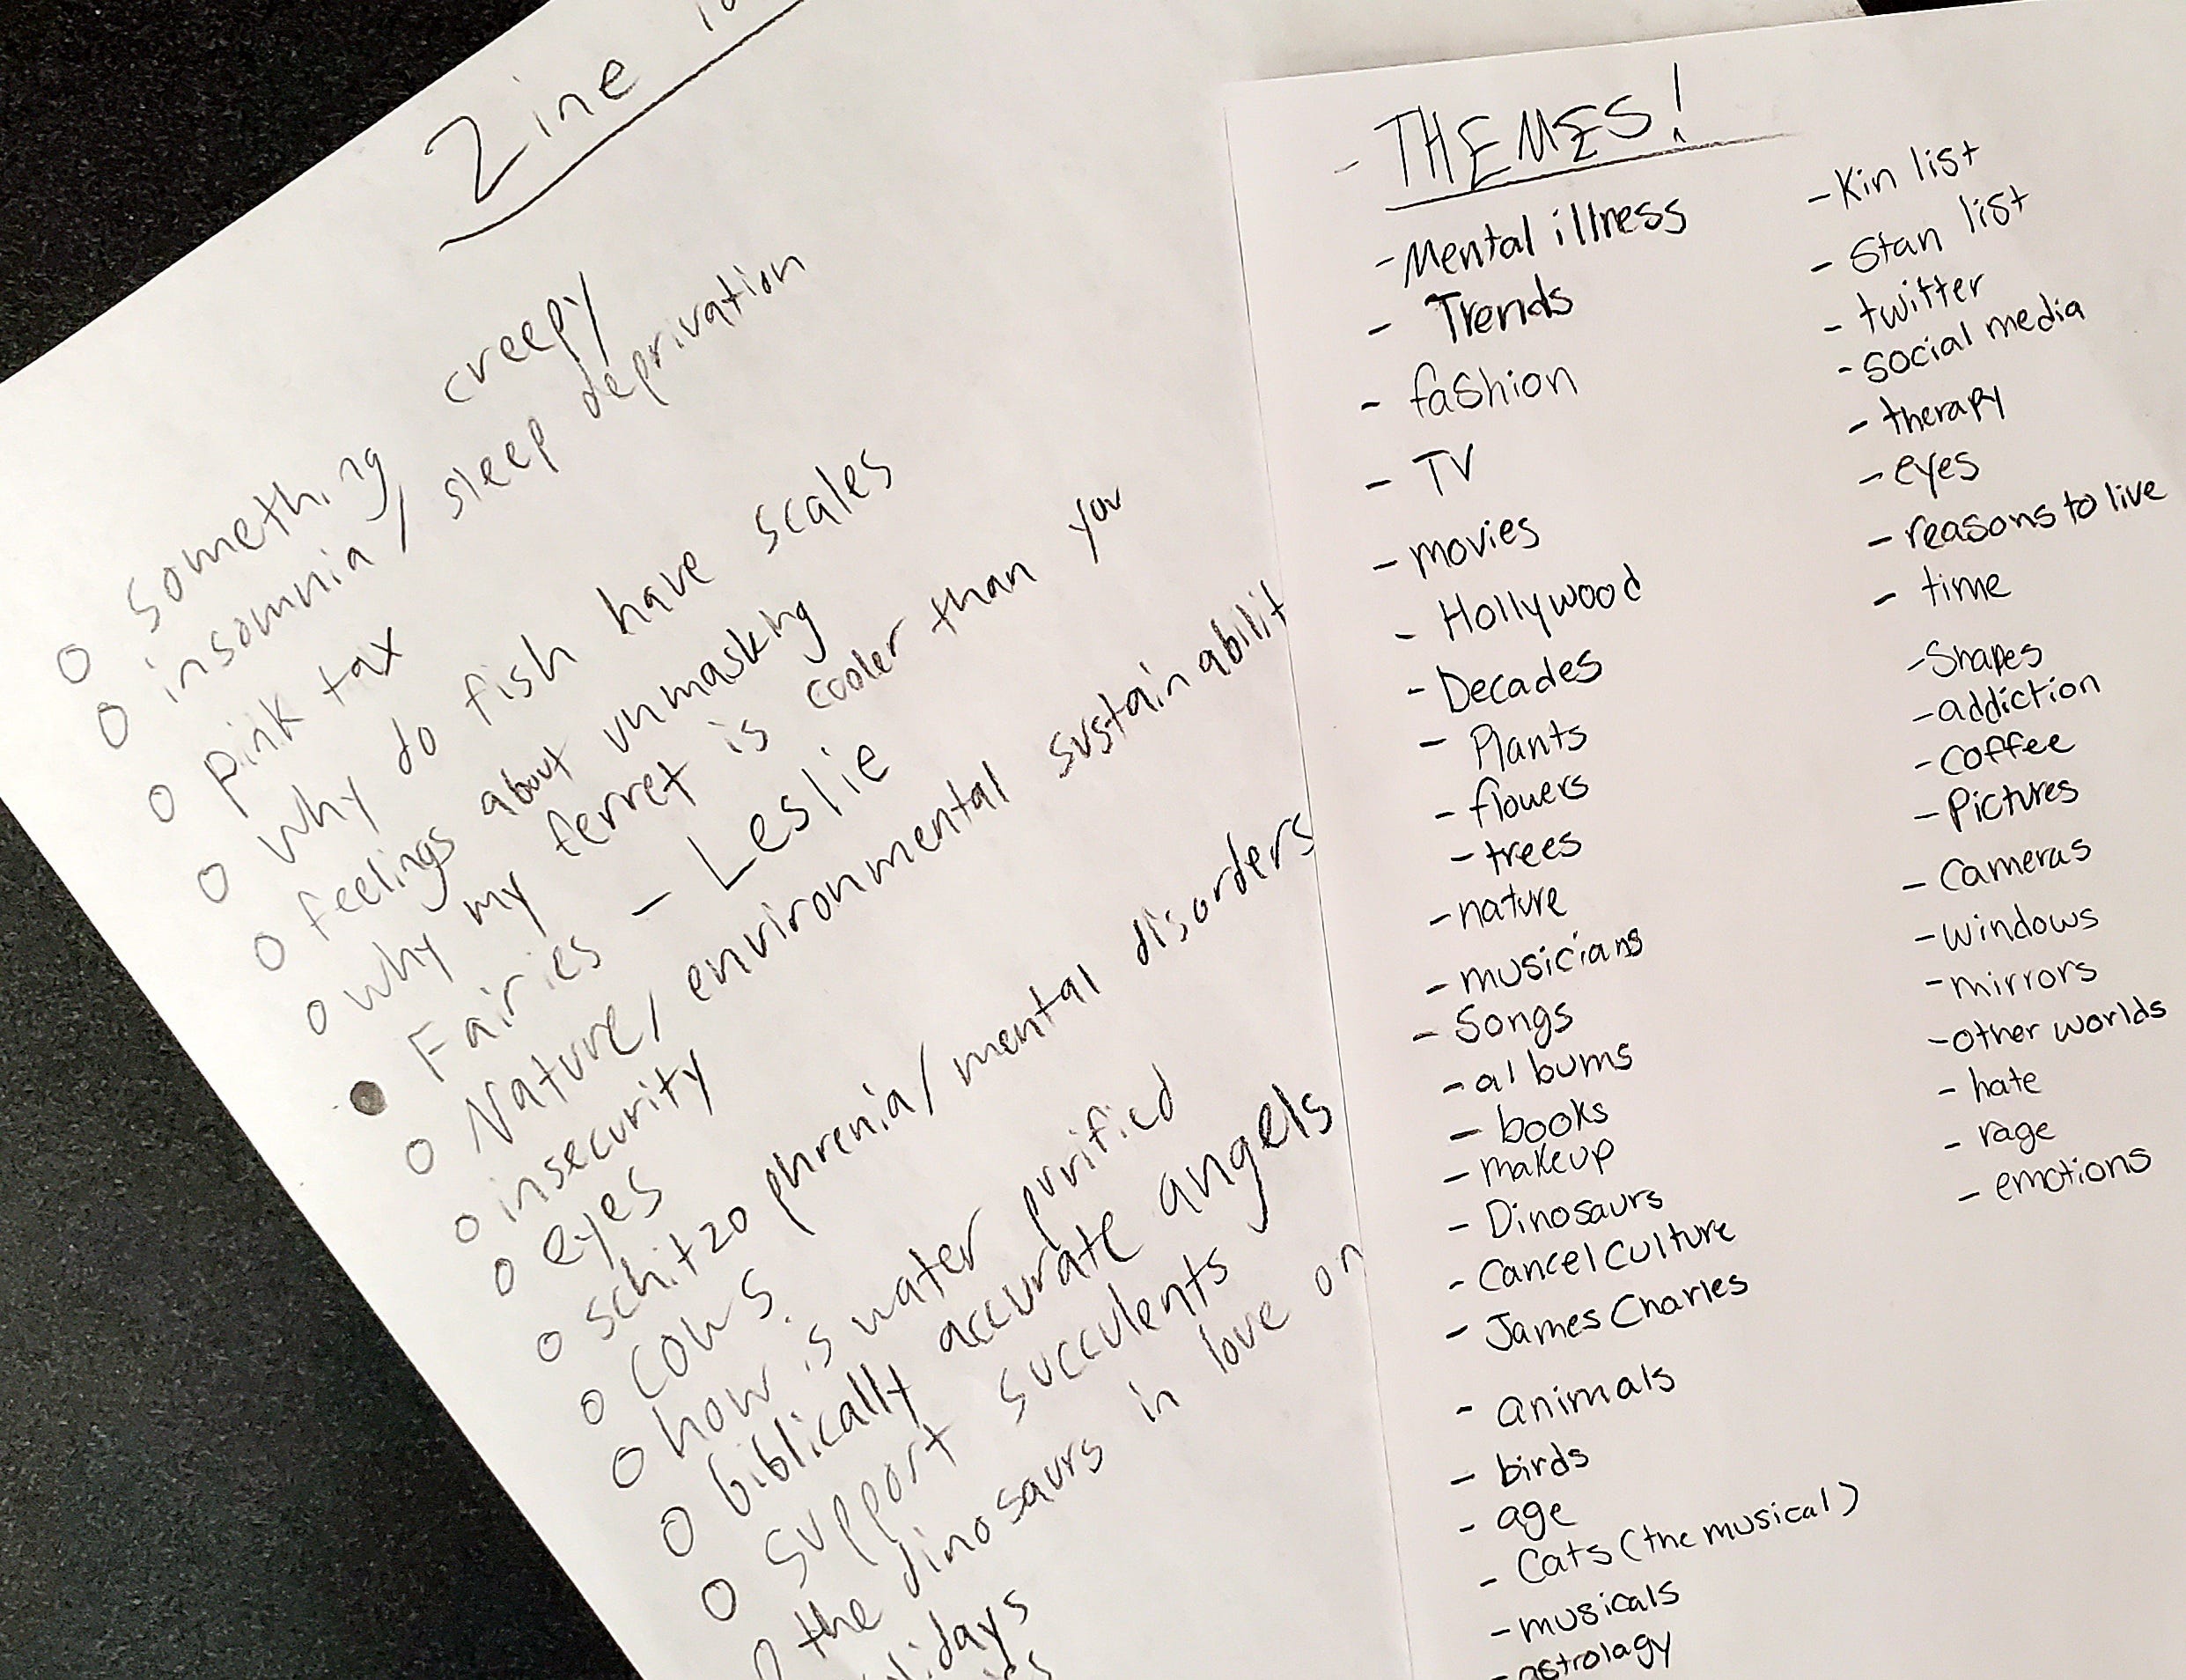 Zine
o something creepy
o insomnia/ sleep deprivation
o pink tax
o why do fish have scales
o feelings about unmasking
o why my ferret is cooler than you
● Fairies - Leslie
o Nature/ environmental sustainabilit
o insecurity
o eyes
o schitzophrenia/mental disorders
o cows
o how is water purified
o biblically accurate angels
o support succulents
o the dinosaurs in love on
- THEMES!
- Mental illness
- Trends
- fashion
- TV
- movies
- Hollywood
- Decades
- Plants
- flowers
- trees
- nature
- musicians
- Songs
- albums
- books
- makeup
- Dinosaurs
- Cancel Culture
- James Charles
- animals
- birds
- age
- Cats (the musical)
- musicals
- astrology
- Kin list
- Stan list
- twitter
- social media
- therapy
- eyes
- reasons to live
- time
- Shapes
- addiction
- coffee
- Pictures
- Cameras
- windows
- mirrors
- other worlds
- hate
- rage
- emotions